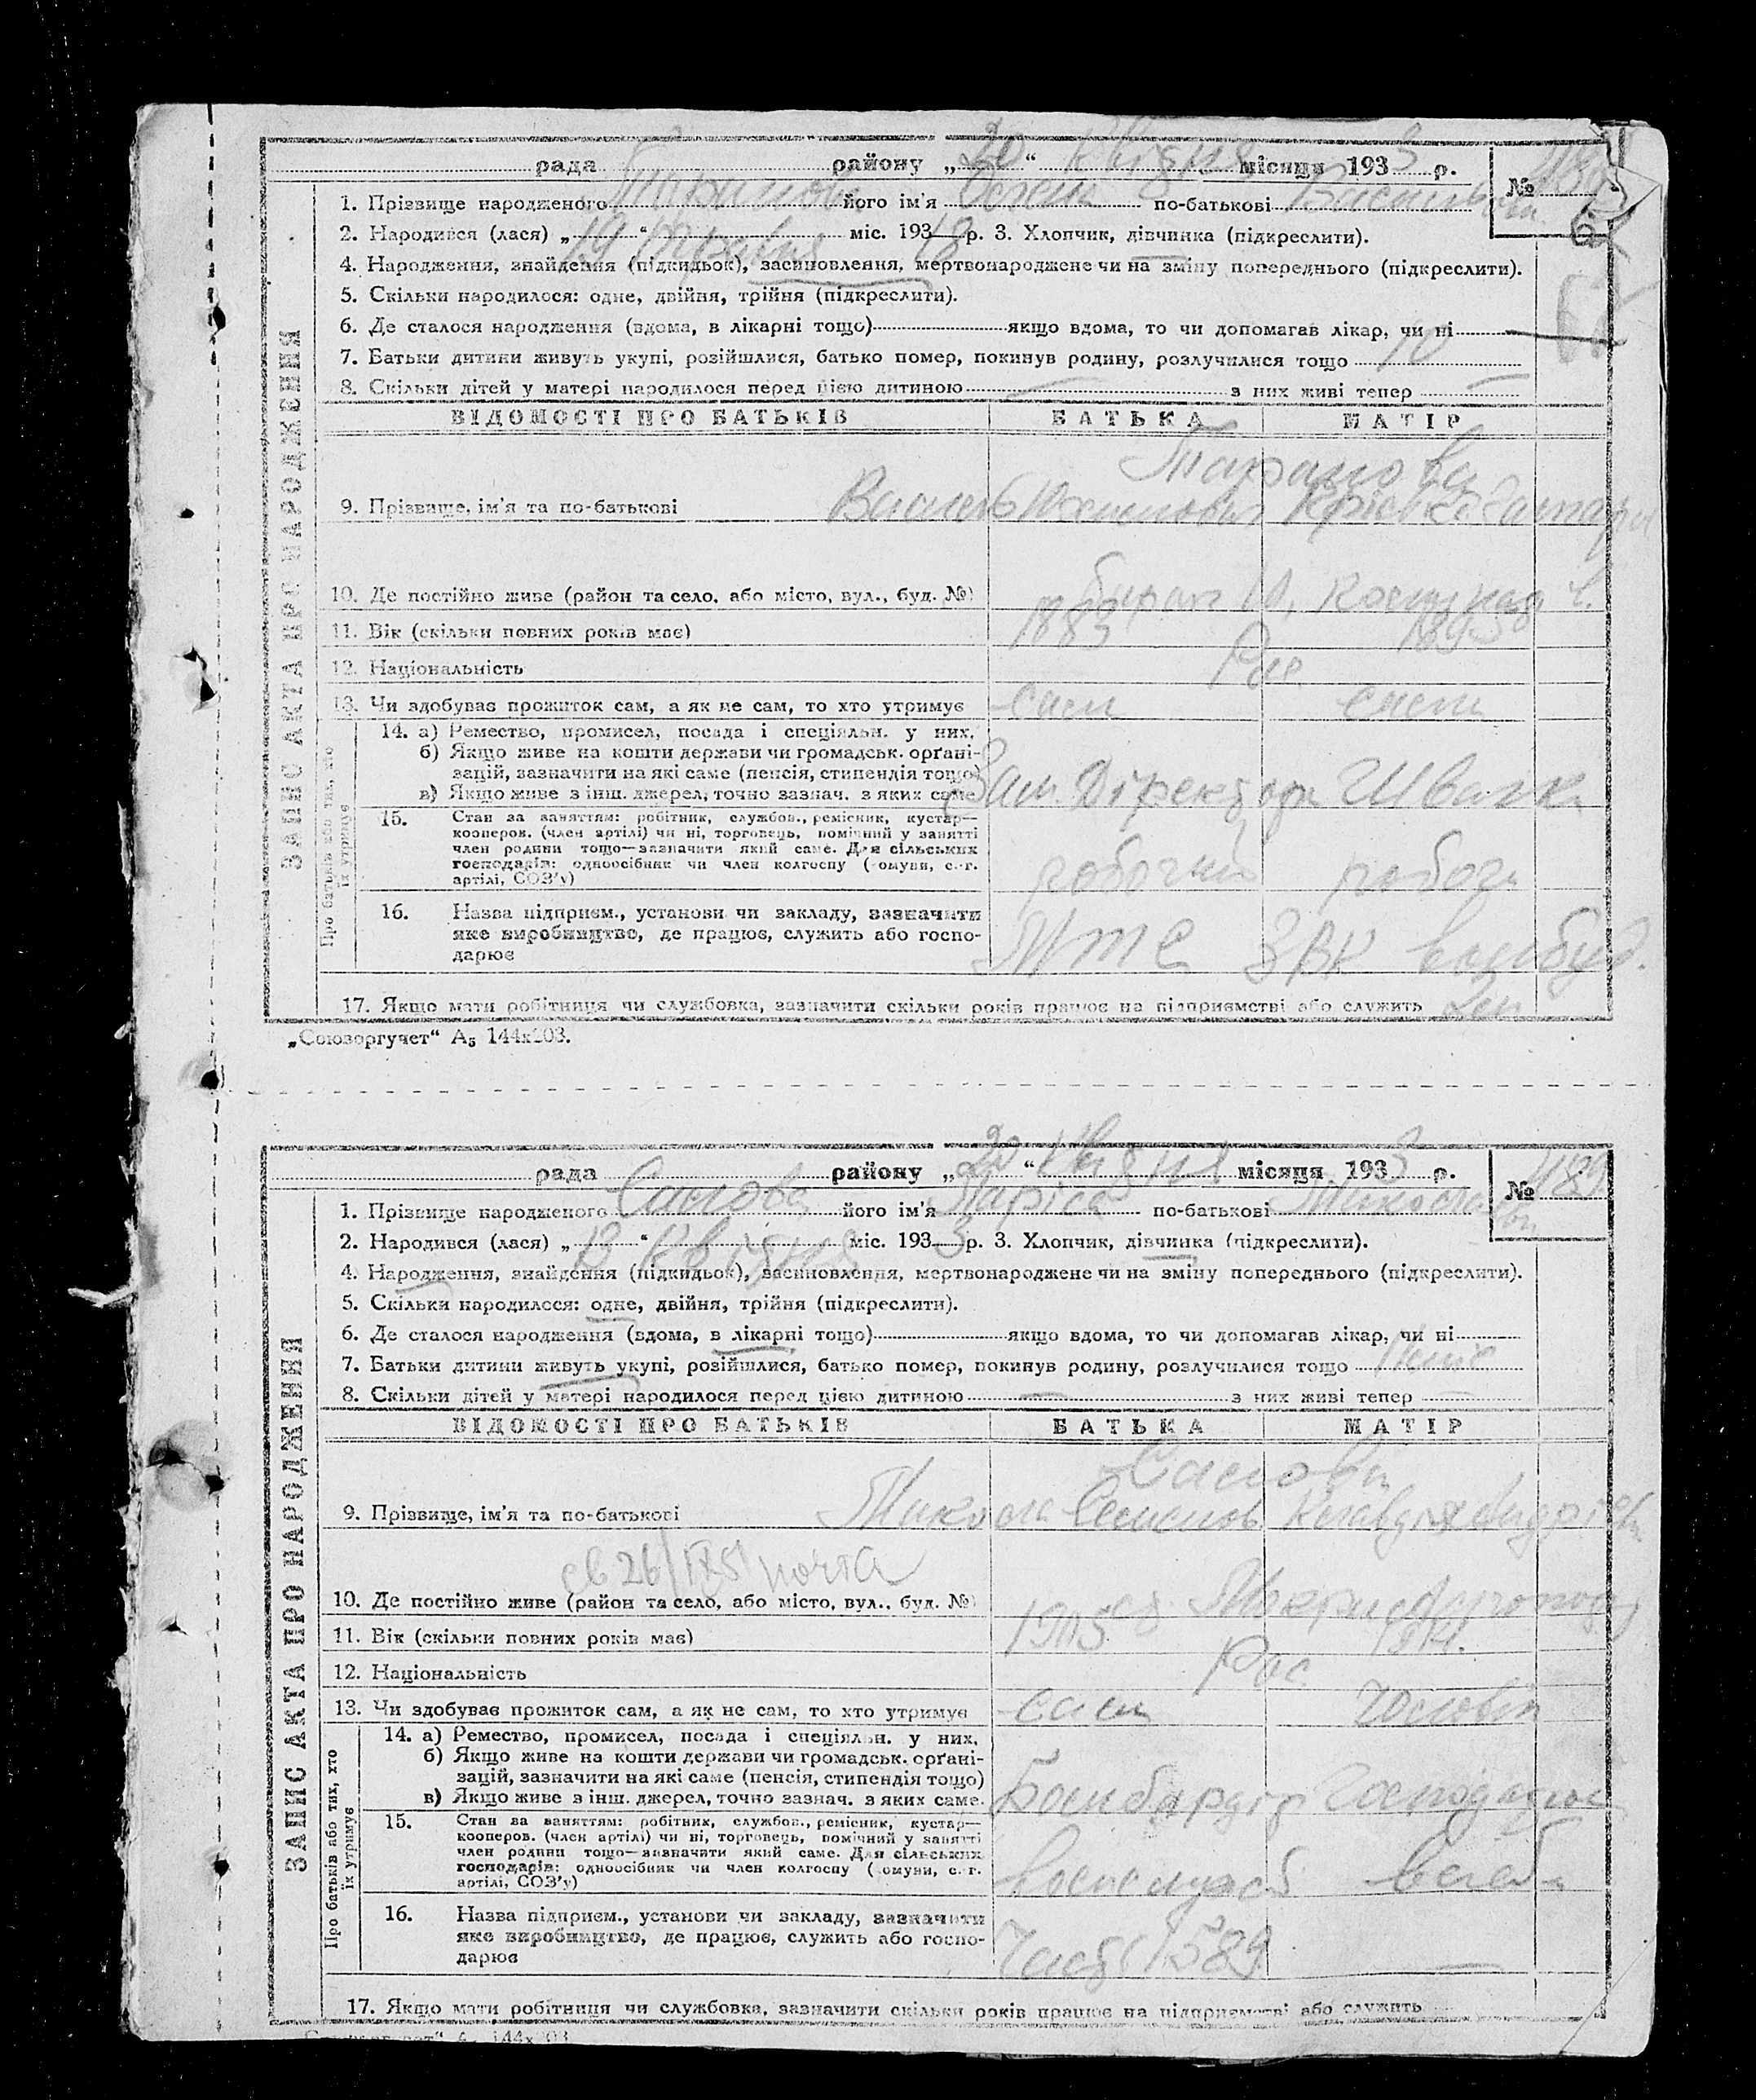 рада району „20“ квітня місяця 1933 р. №
1. Прізвище народженого Таранова його ім'я Олена по-батькові
2. Народився (лася) „19“ травня міс. 1918 р. 3. Хлопчик, дівчинка (підкреслити).
4. Народження, знайдення (підкидьок), засиновлення, мертвонароджене чи на зміну попереднього (підкреслити).
5. Скільки народилося: одне, двійня, трійня (підкреслити).
6. Де сталося народження (вдома, в лікарні тощо) якщо вдома, то чи допомагав лікар, чи ні
7. Батьки дитини живуть укупі, розійшлися, батько помер, покинув родину, розлучилися тощо
8. Скільки дітей у матері народилося перед цією дитиною — з них живі тепер —
ЗАПИС АКТА ПРО НАРОДЖЕННЯ
ВІДОМОСТІ ПРО БАТЬКІВ БАТЬКА МАТІР
Таранови
9. Прізвище, ім'я та по-батькові Василь
10. Де постійно живе (район та село, або місто, вул., буд. №)
11. Вік (скільки повних років має) 1883 1893
12. Національність Рос
13. Чи здобуває прожиток сам, а як не сам, то хто утримує сам сама
Про батьків або тих, хто їх утримує
14. а) Ремество, промисел, посада і спеціяльн. у них.
б) Якщо живе на кошти держави чи громадськ. орґані-
зацій, зазначити на які саме (пенсія, стипендія тощо)
в) Якщо живе з інш. джерел, точно зазнач. з яких саме
Зам. Діректора Швачка
15. Стан за заняттям: робітник, службов., ремісник, кустар—
кооперов. (член артілі) чи ні, торговець, помічний у занятті
член родини тощо—зазначити який саме. Для сільських
господарів: одноосібник чи член колгоспу (комуни, с.-г.
артілі, СОЗ'у)
робочий робоч
16. Назва підприєм., установи чи закладу, зазначити
яке виробництво, де працює, служить або госпо-
дарює
МТС ЗВК
17. Якщо мати робітниця чи службовка, зазначити скільки років працює на підприємстві або служить
„Союзоргучет“ А5 144х203.
рада району „20“ квітня місяця 1933 р. № 1189
1. Прізвище народженого Самова його ім'я Лариса по-батькові Микола
2. Народився (лася) „13“ Квітня міс. 1933 р. 3. Хлопчик, дівчинка (підкреслити).
4. Народження, знайдення (підкидьок), засиновлення, мертвонароджене чи на зміну попереднього (підкреслити).
5. Скільки народилося: одне, двійня, трійня (підкреслити).
6. Де сталося народження (вдома, в лікарні тощо) якщо вдома, то чи допомагав лікар, чи ні
7. Батьки дитини живуть укупі, розійшлися, батько помер, покинув родину, розлучилися тощо
8. Скільки дітей у матері народилося перед цією дитиною — з них живі тепер —
ЗАПИС АКТА ПРО НАРОДЖЕННЯ
ВІДОМОСТІ ПРО БАТЬКІВ БАТЬКА МАТІР
Самови
9. Прізвище, ім'я та по-батькові Микола Семенов Клавдія Андріев
10. Де постійно живе (район та село, або місто, вул., буд. №)
11. Вік (скільки повних років має) 1905
12. Національність Рос
13. Чи здобуває прожиток сам, а як не сам, то хто утримує сам Чоловік
Про батьків або тих, хто їх утримує
14. а) Ремество, промисел, посада і спеціяльн. у них.
б) Якщо живе на кошти держави чи громадськ. орґані-
зацій, зазначити на які саме (пенсія, стипендія тощо)
в) Якщо живе з інш. джерел, точно зазнач. з яких саме.
Бомбардір
15. Стан за заняттям: робітник, службов., ремісник, кустар—
кооперов. (член артілі) чи ні, торговець, помічний у занятті
член родини тощо—зазначити який саме. Для сільських
господарів: одноосібник чи член колгоспу (комуни, с.-г.
артілі, СОЗ'у)
16. Назва підприєм., установи чи закладу, зазначити
яке виробництво, де працює, служить або госпо-
дарює
Часть 1589 —
17. Якщо мати робітниця чи службовка, зазначити скільки років працює на підприємстві або служить